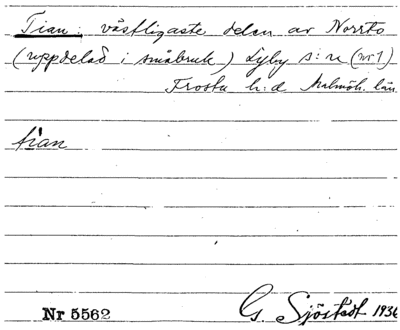 Tian: västligaste delen av Norrto
(uppdelad i småbruk) Lyby s:n (nr 1)
Frosta h:d Malmöh. län
tian
Nr 5562 G. Sjöstedt 1936